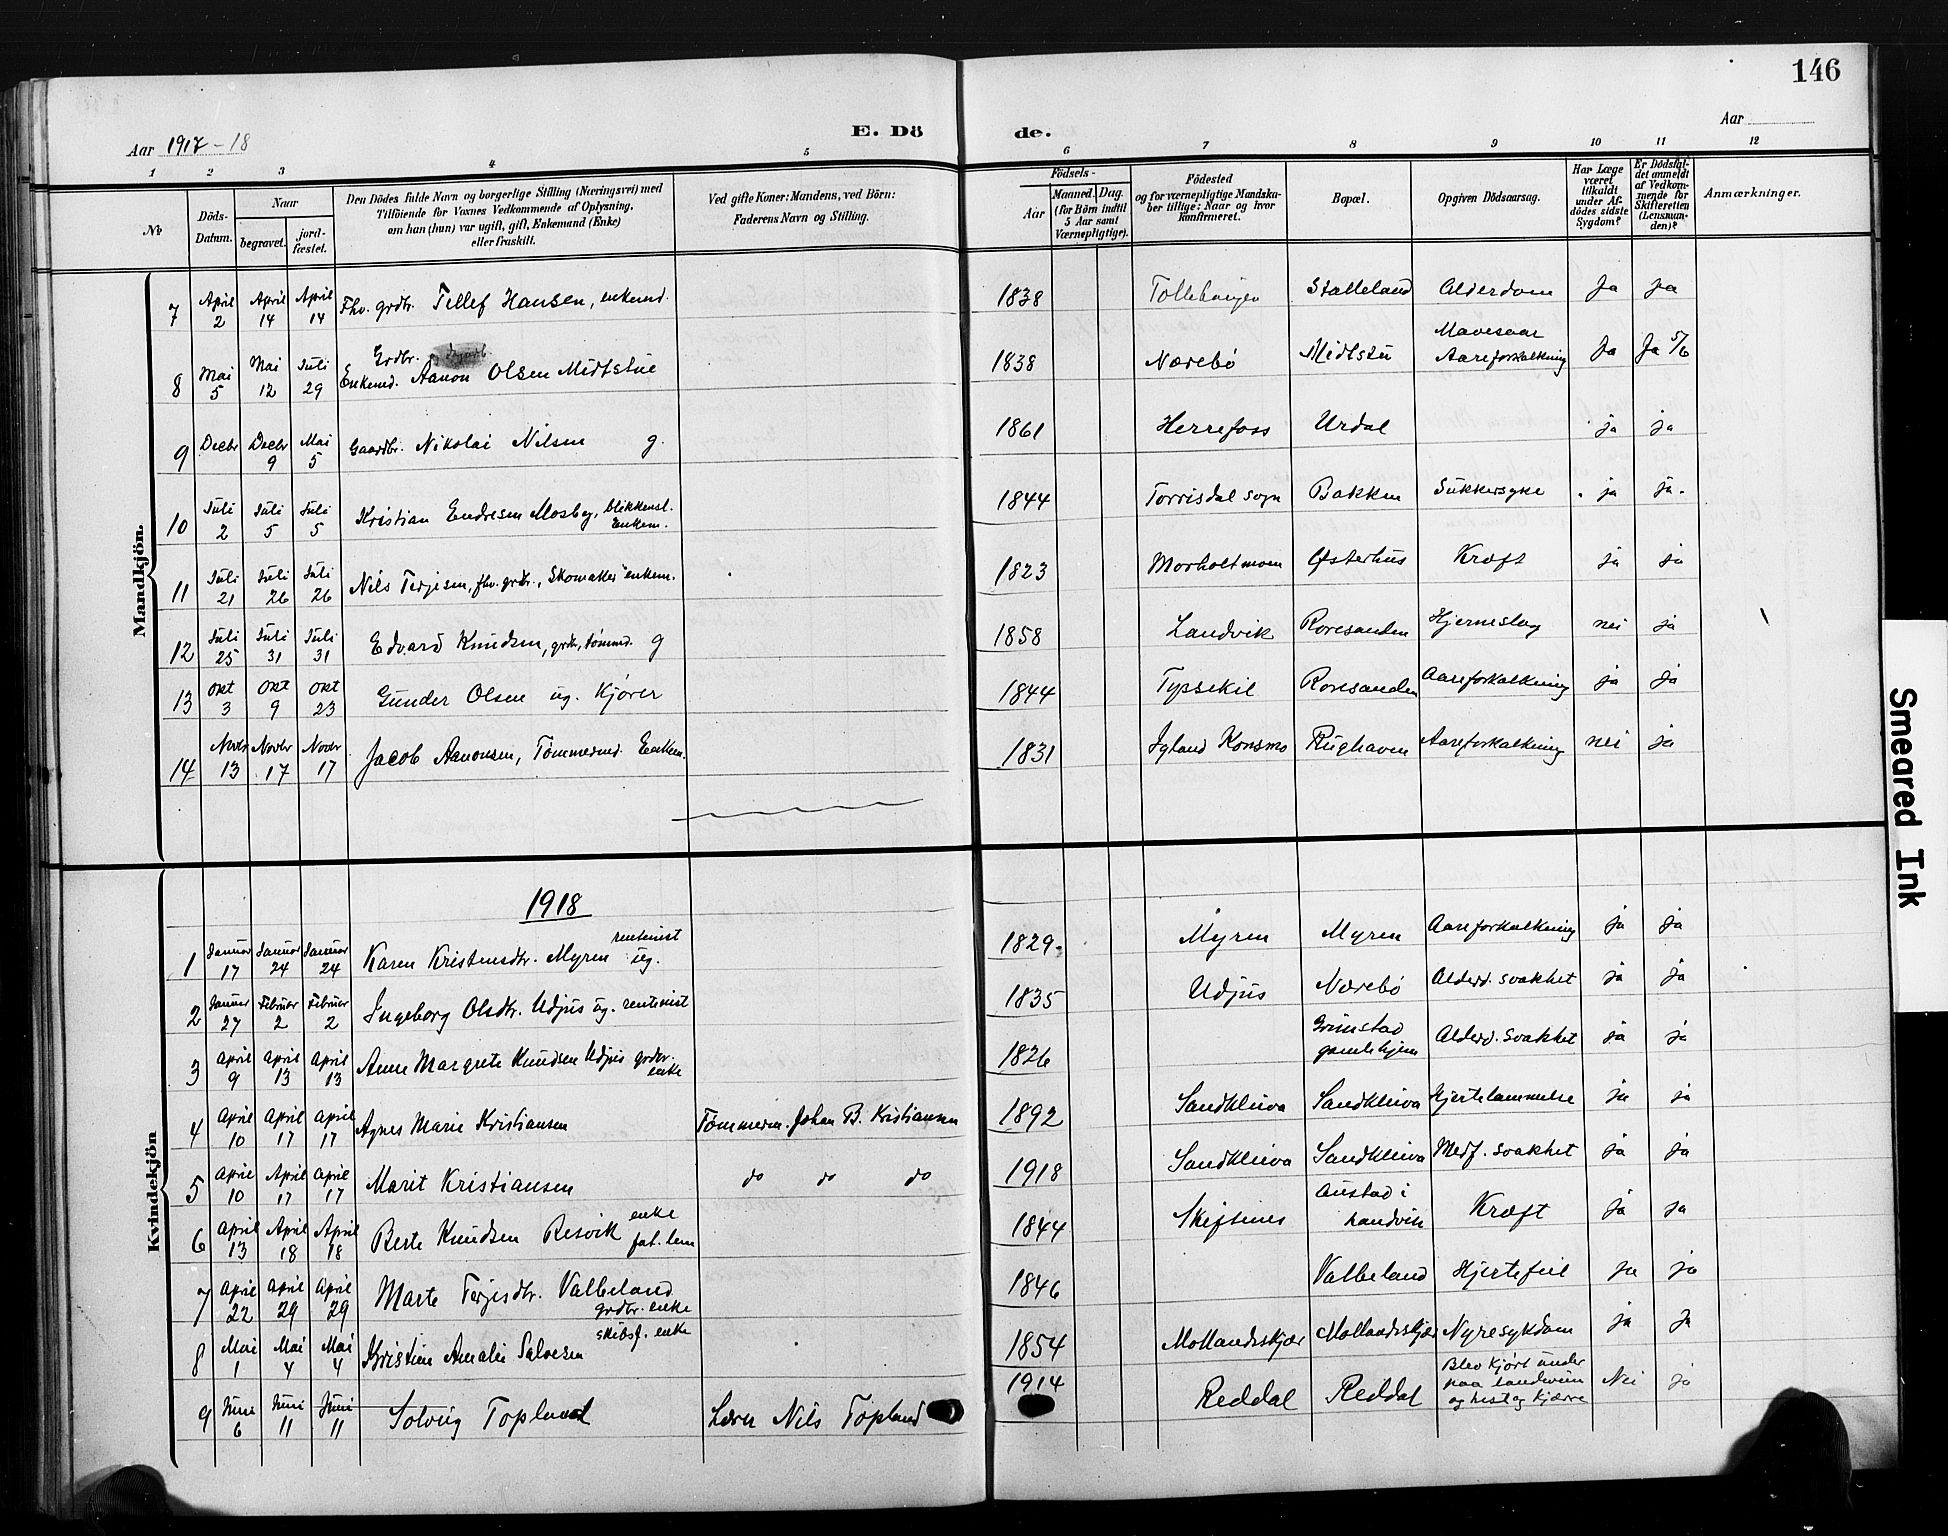 146
Aar 1917-18
E. Dö
de.
Aar
1 2 3 4 5 6 7 8 9 10 11 12
No
Döds-Datum.
Naar
begravet.
jord-fæstet.
Den Dödes fulde Navn og borgerlige Stilling (Næringsvei) med
Tilföiende for Voxnes Vedkommende af Oplysning,
om han (hun) var ugift, gift, Enkemand (Enke)
eller fraskilt.
Ved gifte Koner: Mandens, ved Börn:
Faderens Navn og Stilling.
Födsels-
Aar
Maaned. Dag.
(for Börn indtil
5 Aar samt
Værnepligtige).
Födested
og for værnepligtige Mandska-
ber tillige: Naar og hvor
konfirmeret.
Bopæl.
Opgiven Dödsaarsag.
Har Læge
været
tilkaldt
under Af-
dödes sidste
Sygdom?
Er Dödsfal-
det anmeldt
af Vedkom-
mende for
Skifteretten
(Lensman-
den)?
Anmærkninger.
Mandkjön.
7 April 2 April 14 April 14 Fhv. grdbr. Tellef Hansen, enkemd. 1838 Stalleland Alderdom Ja Ja
8 Mai 5 Mai 12 Juli 29 Grdbr. Enkemd. Aanon Olsen Midtstue 1838 Nærebö Midtstu Mavesaar Aareforkalkning Ja Ja 5/6
9 Decbr Decbr 9 Mai 5 Gaardbr. Nikolai Nilsen g. 1861 Herrefoss Urdal ja ja
10 Juli 2 Juli 5 Juli 5 Kristian Endresen Mosby, blikkensl. Enkem. 1844 Torrisdal sogn Bakken Sukkersyke ja ja.
11 Juli 21 Juli 26 Juli 26 Nils Terjesen, fhv. grdbr., Skomaker enkem. 1823 Morholtmoen Østerhus Kræft ja ja
12 Juli 25 Juli 31 Juli 31 Edvard Knudsen, grdb., tømmerm. g 1858 Landvik Roresanden Hjerneslag nei ja
13 Okt 3 Okt 9 Okt 23 Gunder Olsen ug. Kjører 1844 Typsekil Roresanden Aareforkalkning ja ja
14 Novbr 13 Novbr 17 Novbr 17 Jacob Aanonsen, Tømmermd. Enkem. 1831 Igland Konsmo Rughaven Aareforkalkning nei ja
Kvindekjön
1918
1 Januar 17 Januar 24 Januar 24 Karen Kristensdtr. Myren rentenist ug. 1829 Myren Myren Aareforkalkning ja ja
2 Januar 27 Februar 2 Februar 2 Ingeborg Olsdtr. Udjus ug. rentenist 1835 Udjus Nærebö Alderd. svakhet ja ja
3 April 9 April 13 April 13 Anne Margrete Knudsen Udjus grdbr. enke 1826 Grimstad gamlehjem Alderd. svakhet ja ja
4 April 10 April 17 April 17 Agnes Marie Kristiansen Tømmerm. Johan B. Kristiansen 1892 Sandkleiva Sandkleiva Hjertelammelse ja ja
5 April 10 April 17 April 17 Marit Kristiansen do do do 1918 Sandkleiva Sandkleiva Medf. svakhet ja ja
6 April 13 April 18 April 18 Berte Knudsen Resvik enke fat. lem 1844 Skiftenes Austad i Landvik Kræft ja ja
7 April 22 April 29 April 29 Marte Terjesdtr. Valbeland grdbr. enke 1846 Valbeland Hjertefeil ja ja
8 Mai 1 Mai 4 Mai 4 Kristine Amalie Salvesen skibsf. enke 1854 Mollandsskjær Mollandsskjær Nyresykdom ja ja
9 Juni 6 Juni 11 Juni 11 Solveig Topland Lærer Nils Topland 1914 Reddal Reddal Blev kjørt under paa landeveien og hest og kjærre Nei ja
Smeared Ink